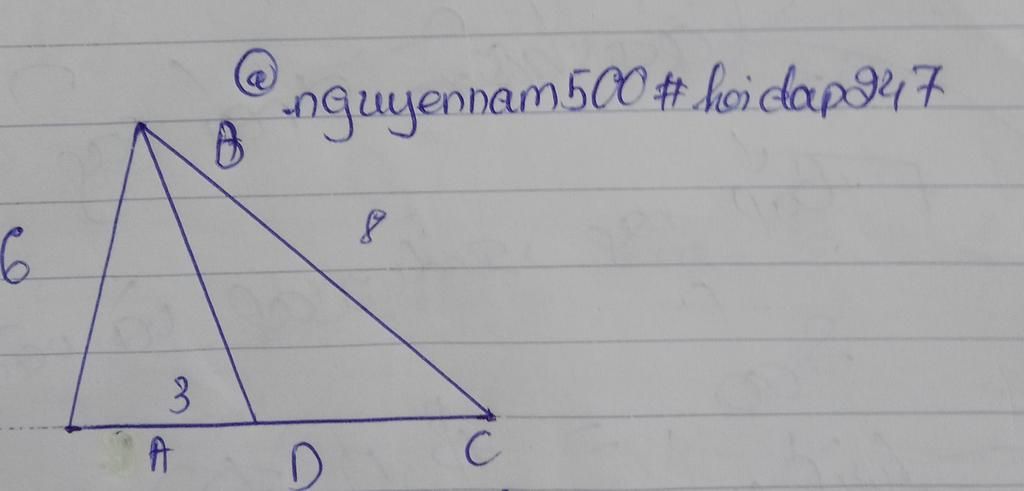 @
nguyennam500#hoidap247
B
8
6
3
A
D
C